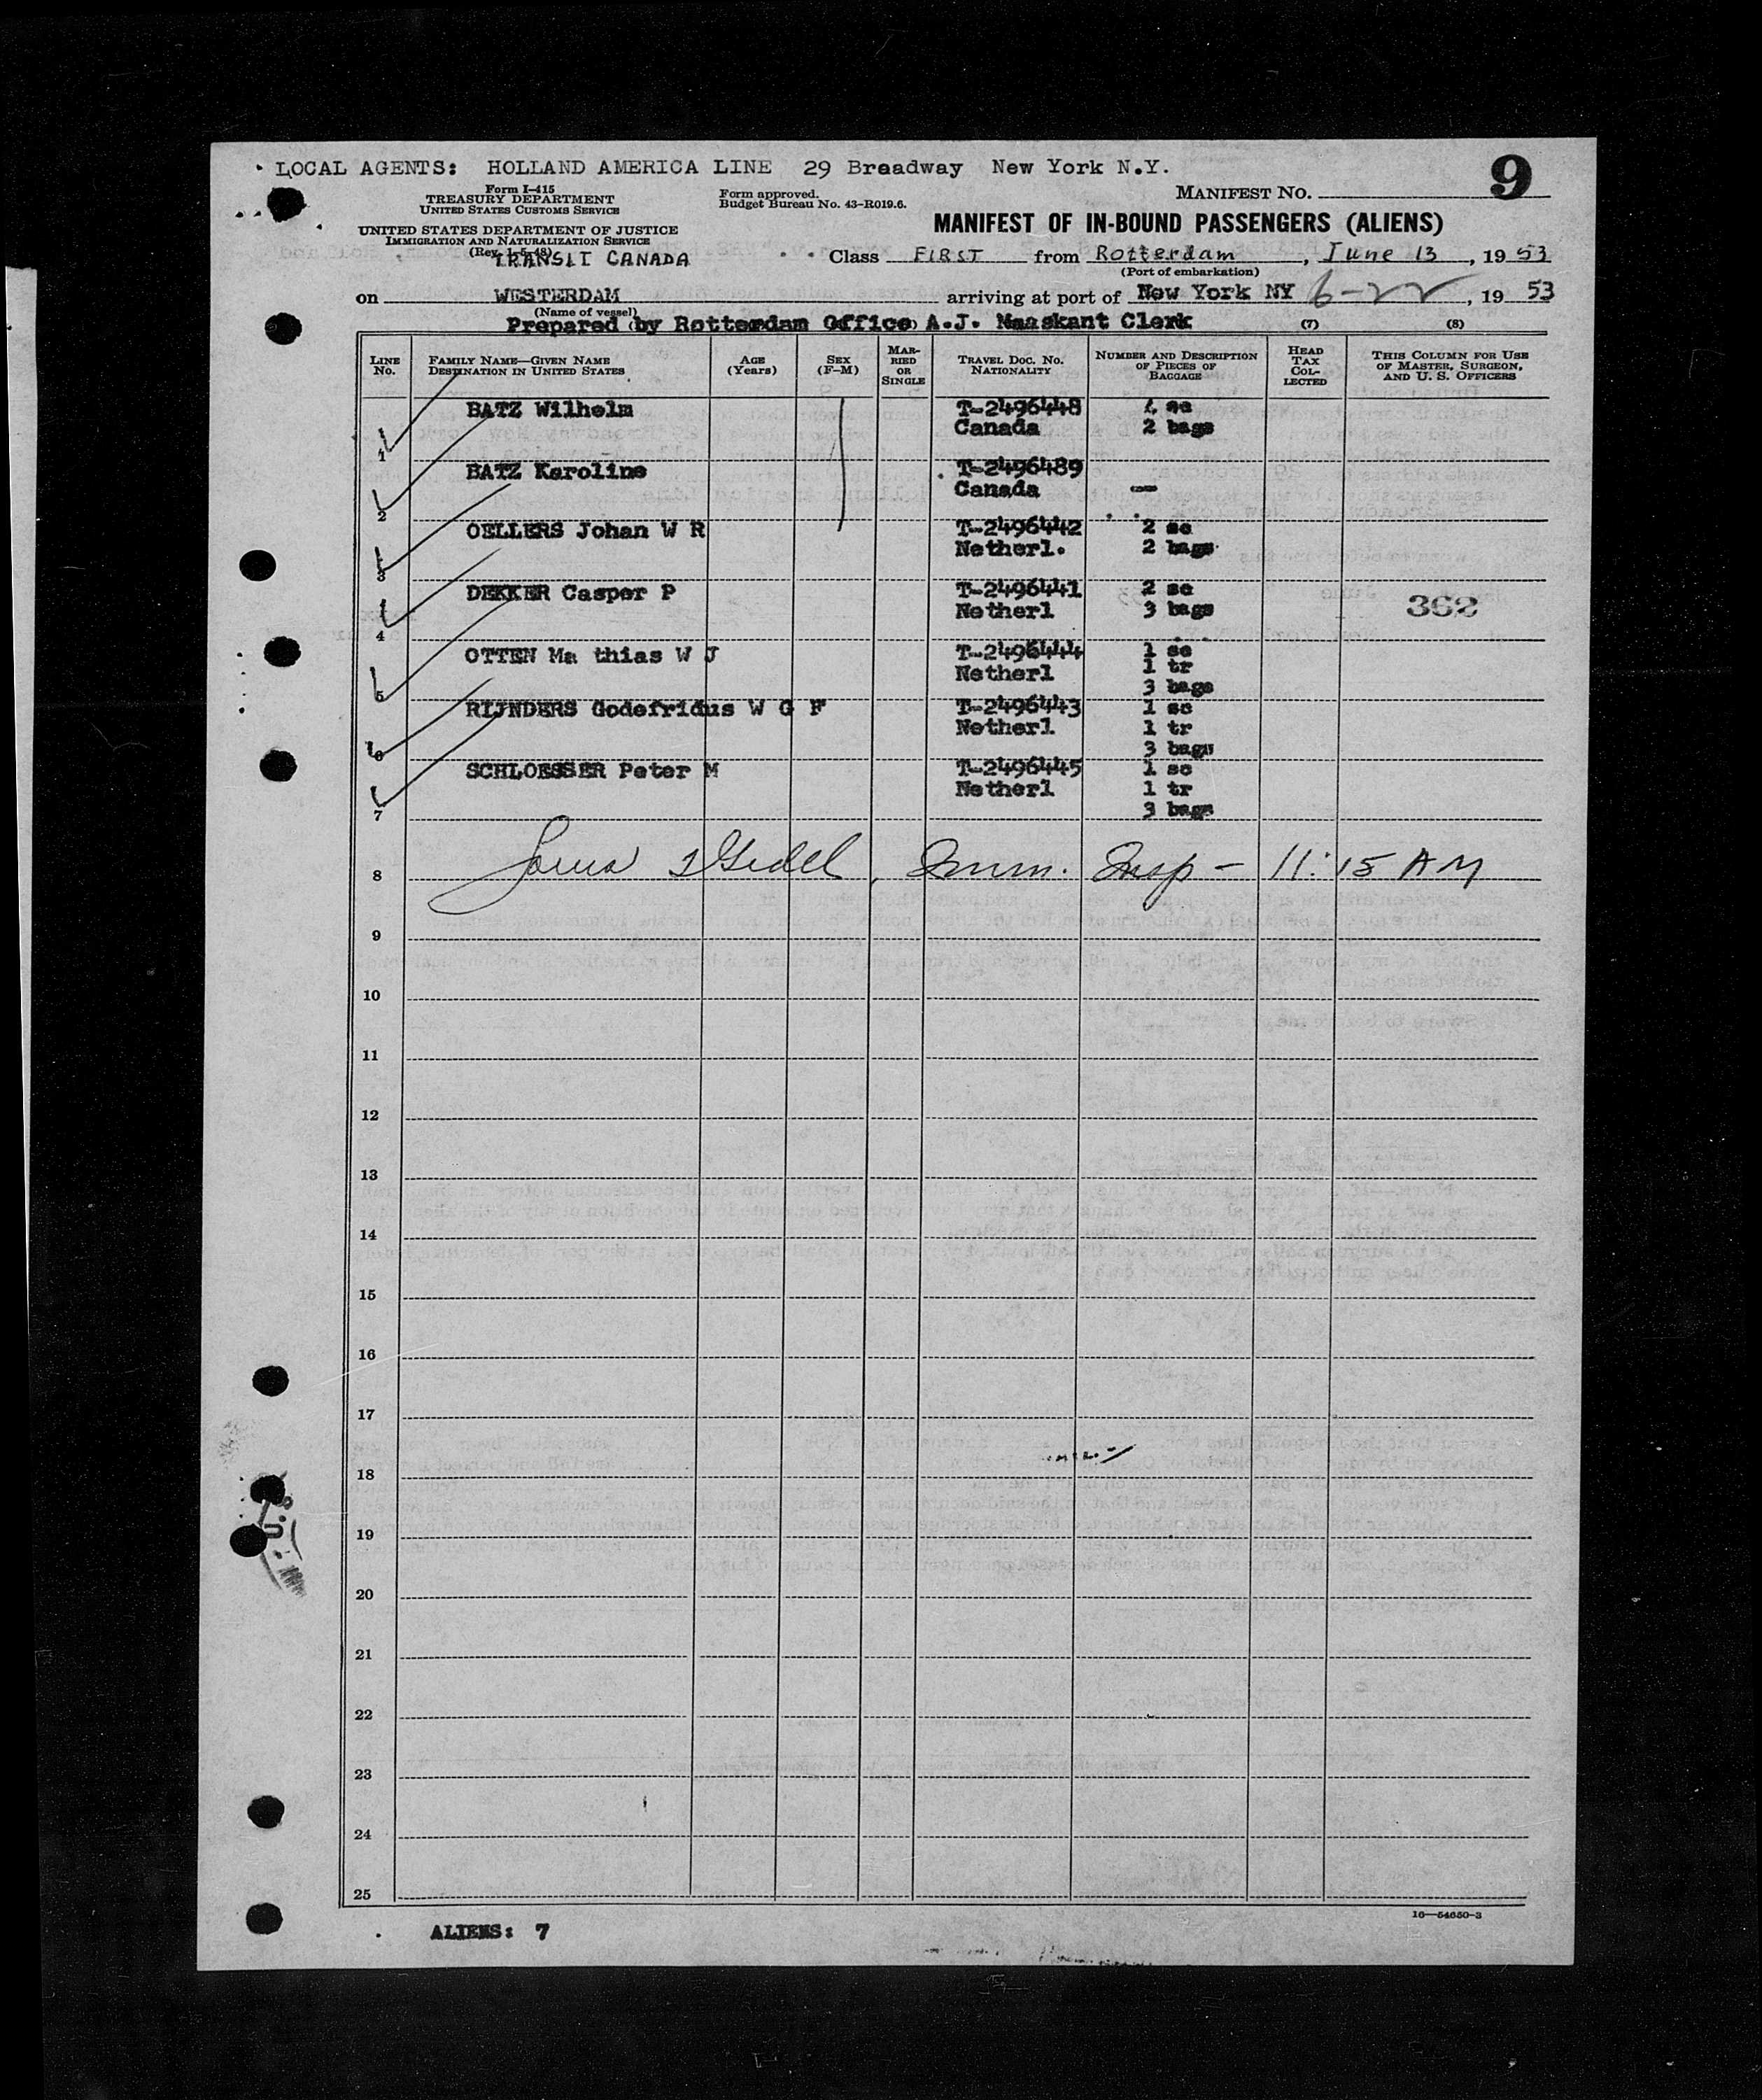 LOCAL AGENTS: HOLLAND AMERICA LINE 29 Breadway New York N.Y.
9
Form I-415
TREASURY DEPARTMENT
UNITED STATES CUSTOMS SERVICE
Form approved.
Budget Bureau No. 43-R019.6.
MANIFEST NO.
MANIFEST OF IN-BOUND PASSENGERS (ALIENS)
UNITED STATES DEPARTMENT OF JUSTICE
IMMIGRATION AND NATURALIZATION SERVICE
(Rev. 1-5-48)
TRANSIT CANADA
Class FIRST from Rotterdam, June 13, 1953
(Port of embarkation)
on WESTERDAM arriving at port of New York NY 6-22, 1953
(Name of vessel)
Prepared by Rotterdam Office A.J. Maaskant Clerk (7) (8)
LINE No. FAMILY NAME—GIVEN NAME DESTINATION IN UNITED STATES AGE (Years) SEX (F-M) MARRIED OR SINGLE TRAVEL DOC. NO. NATIONALITY NUMBER AND DESCRIPTION OF PIECES OF BAGGAGE HEAD TAX COLLECTED THIS COLUMN FOR USE OF MASTER, SURGEON, AND U. S. OFFICERS
1 BATZ Wilhelm T-2496448 sc
Canada 2 bags
2 BATZ Karoline T-2496489
Canada —
3 OELLERS Johan W R T-2496442 2 sc
Netherl. 2 bags
4 DEKKER Casper P T-2496441 2 sc
Netherl 3 bags 362
5 OTTEN Ma thias W J T-2496444 1 sc
Netherl 1 tr
3 bags
6 RIJNDERS Godefridus W G F T-2496443 1 sc
Netherl 1 tr
3 bags
7 SCHLOESSER Peter M T-2496445 1 sc
Netherl 1 tr
3 bags
8 Imm. Insp - 11:15 AM
9
10
11
12
13
14
15
16
17
18
19
20
21
22
23
24
25
16—54650-3
ALIENS: 7